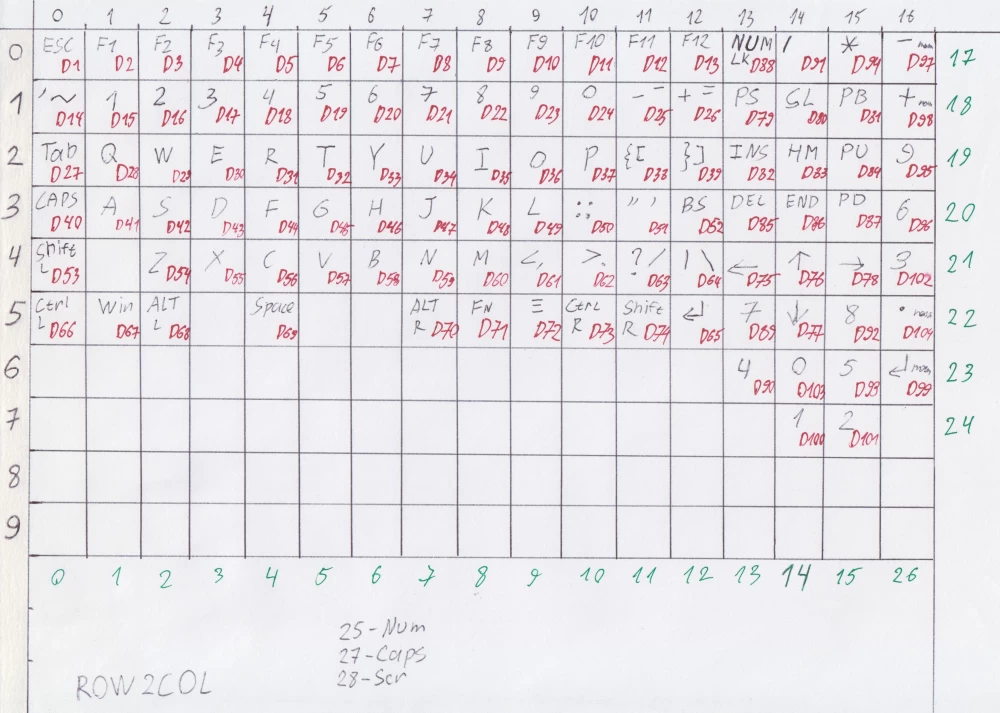 0 1 2 3 4 5 6 7 8 9 10 11 12 13 14 15 16
0 ESC D1 F1 D2 F2 D3 F3 D4 F4 D5 F5 D6 F6 D7 F7 D8 F8 D9 F9 D10 F10 D11 F11 D12 F12 D13 NUM LK D88 / D91 * D94 - num D97 17
1 '~ D14 1 D15 2 D16 3 D17 4 D18 5 D19 6 D20 7 D21 8 D22 9 D23 0 D24 - - D25 + = D26 PS D79 SL D80 PB D81 + num D98 18
2 Tab D27 Q D28 W D29 E D30 R D31 T D32 Y D33 U D34 I D35 O D36 P D37 {[ D38 }] D39 INS D82 HM D83 PU D84 9 D95 19
3 CAPS D40 A D41 S D42 D D43 F D44 G D45 H D46 J D47 K D48 L D49 :; D50 " ' D51 BS D52 DEL D85 END D86 PD D87 6 D96 20
4 Shift L D53 Z D54 X D55 C D56 V D57 B D58 N D59 M D60 <, D61 >. D62 ?/ D63 | \ D64 ← D75 ↑ D76 → D78 3 D102 21
5 Ctrl L D66 Win D67 ALT L D68 Space D69 ALT R D70 FN D71 Ξ D72 Ctrl R D73 Shift R D74 ↵ D65 7 D89 ↓ D77 8 D92 . num D104 22
6 4 D90 0 D103 5 D93 ↵ num D99 23
7 1 D100 2 D101 24
8
9
0 1 2 3 4 5 6 7 8 9 10 11 12 13 14 15 26
25-Num
27-Caps
28-Scr
ROW2COL